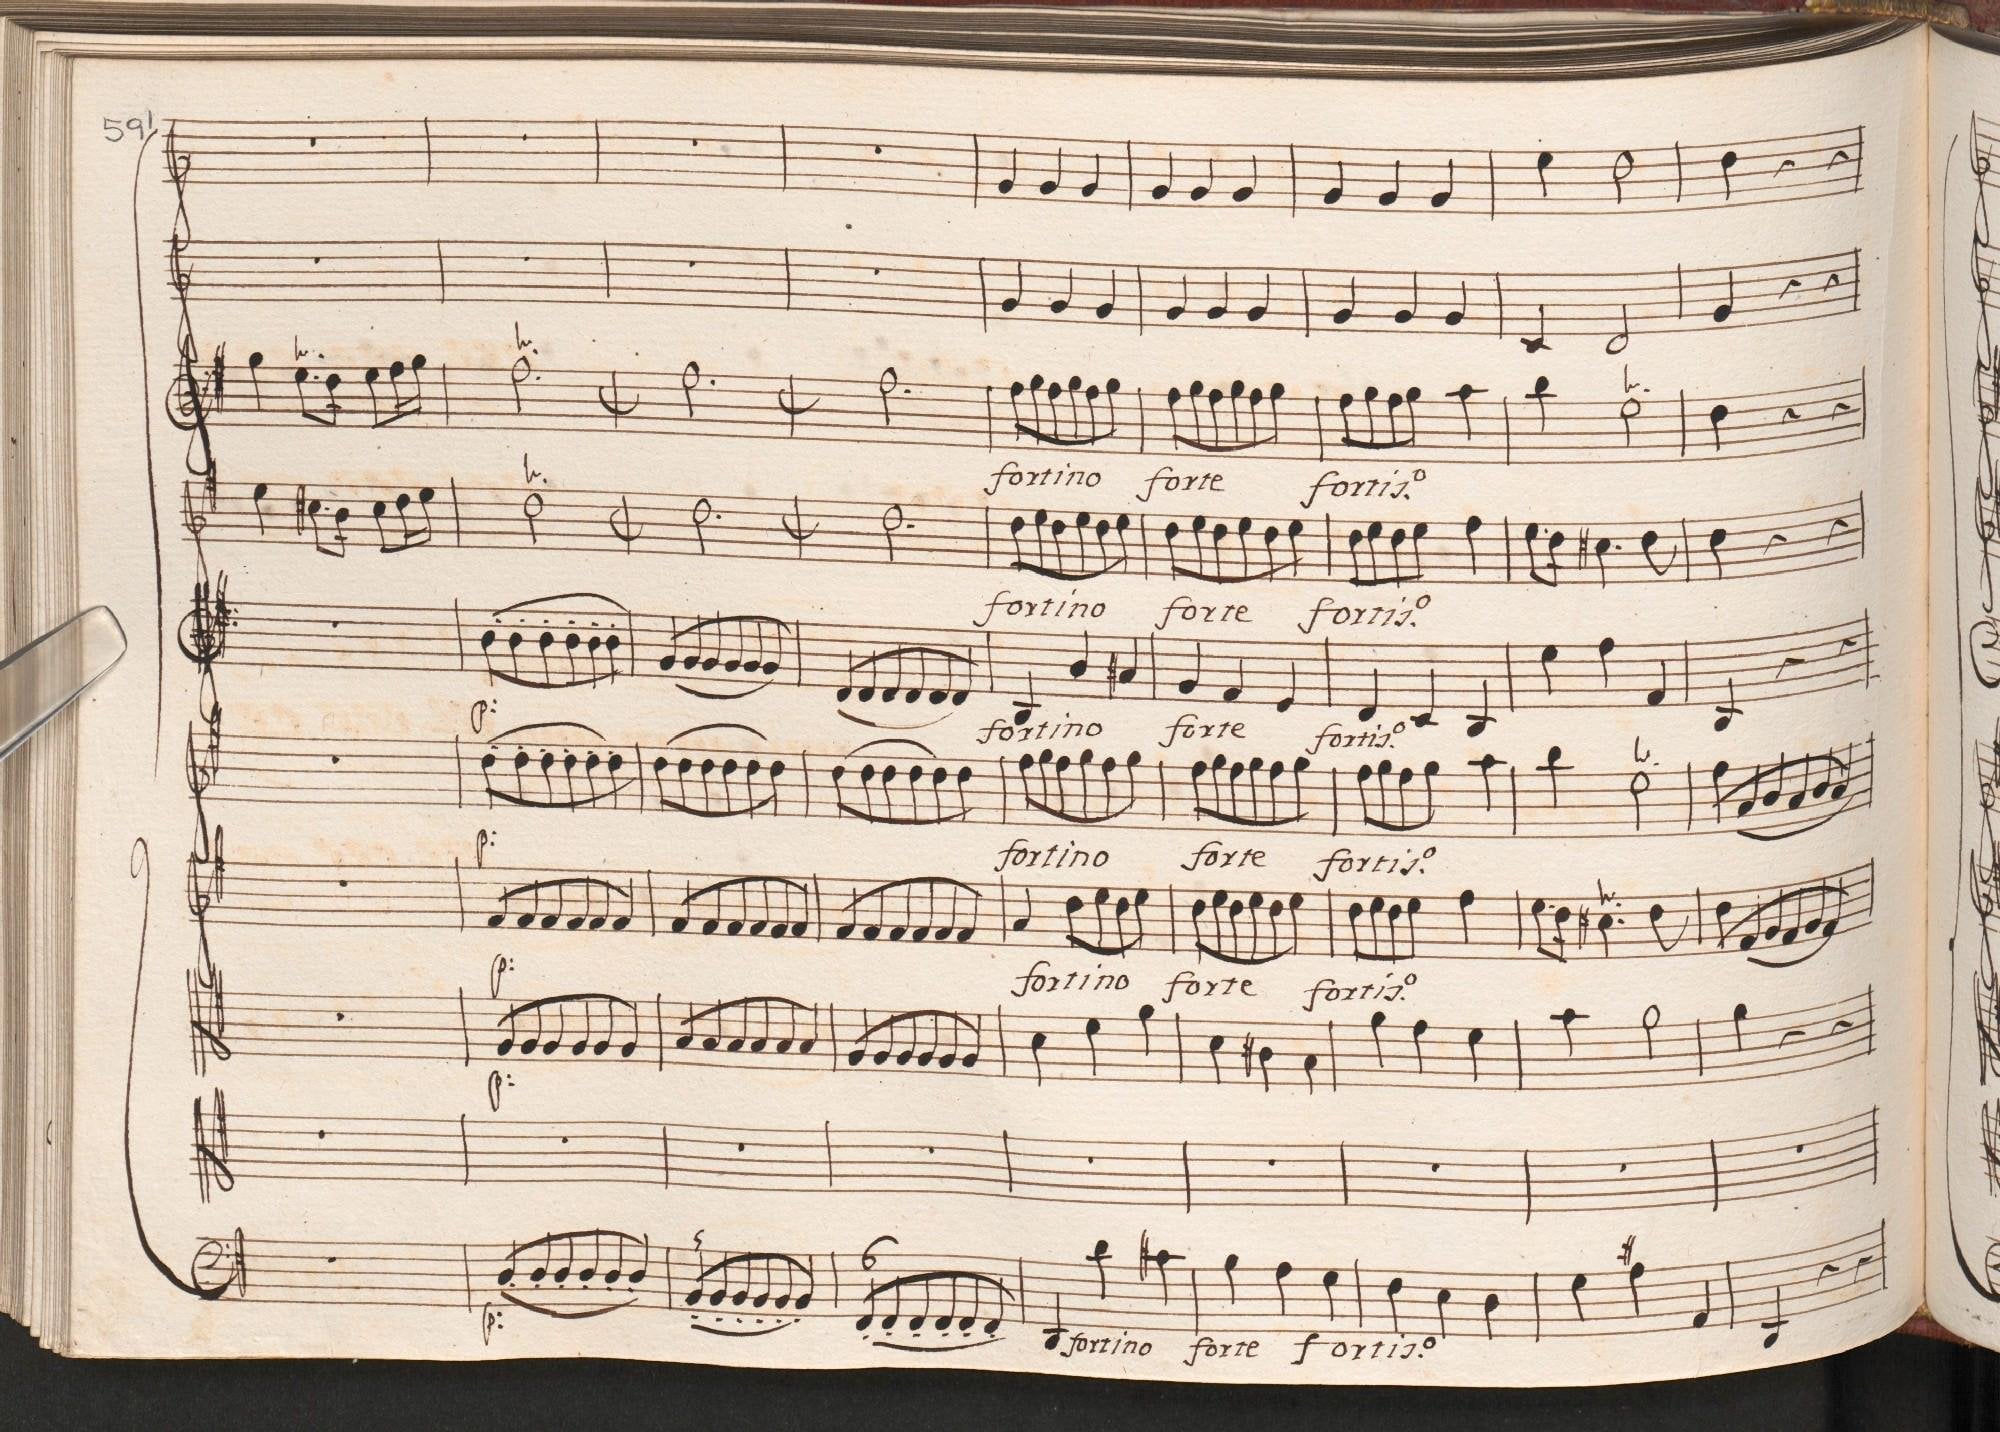 59'
fortino forte fortis.º
fortino forte fortis.º
p: fortino forte fortis.º
p: fortino forte fortis.º
p: fortino forte fortis.º
p:
5 6
p: fortino forte fortis.º